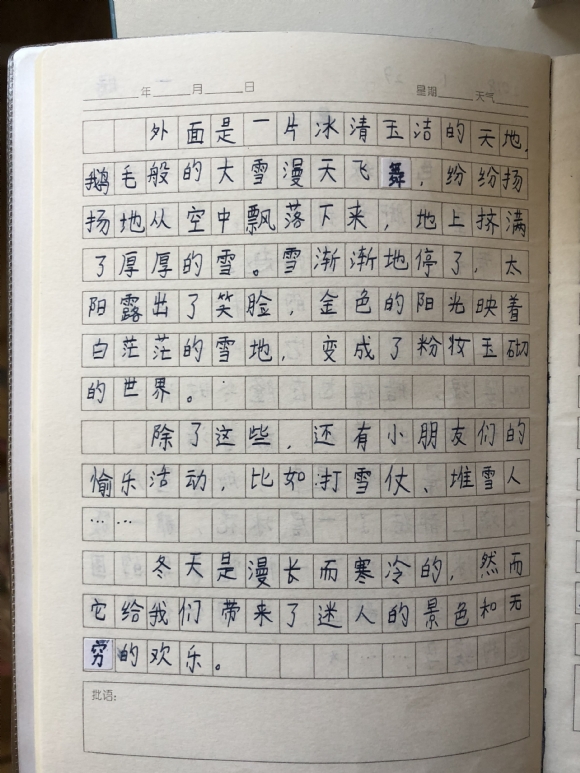 年 月 日 星期 天气
外面是一片冰清玉洁的天地，
鹅毛般的大雪漫天飞舞，纷纷扬
扬地从空中飘落下来，地上挤满
了厚厚的雪。雪渐渐地停了，太
阳露出了笑脸，金色的阳光映着
白茫茫的雪地，变成了粉妆玉砌
的世界。
除了这些，还有小朋友们的
愉乐活动，比如打雪仗、堆雪人
……
冬天是漫长而寒冷的，然而
它给我们带来了迷人的景色和无
穷的欢乐。
批语：